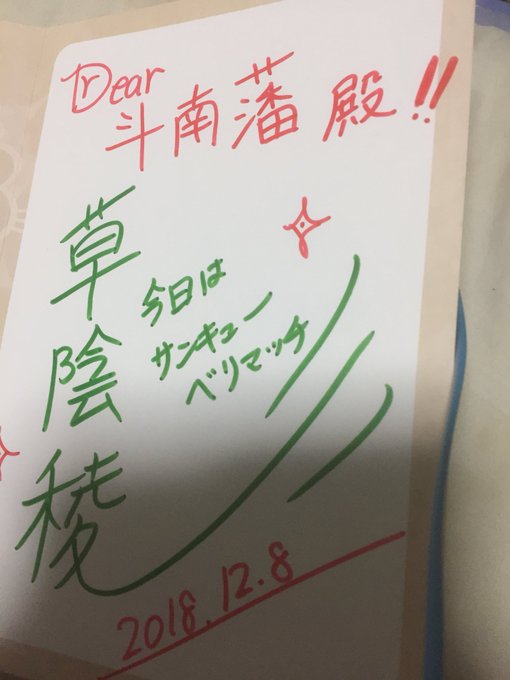 Dear
斗南藩殿!!
草陰稜
今日は
サンキュー
ベリマッチ
2018.12.8